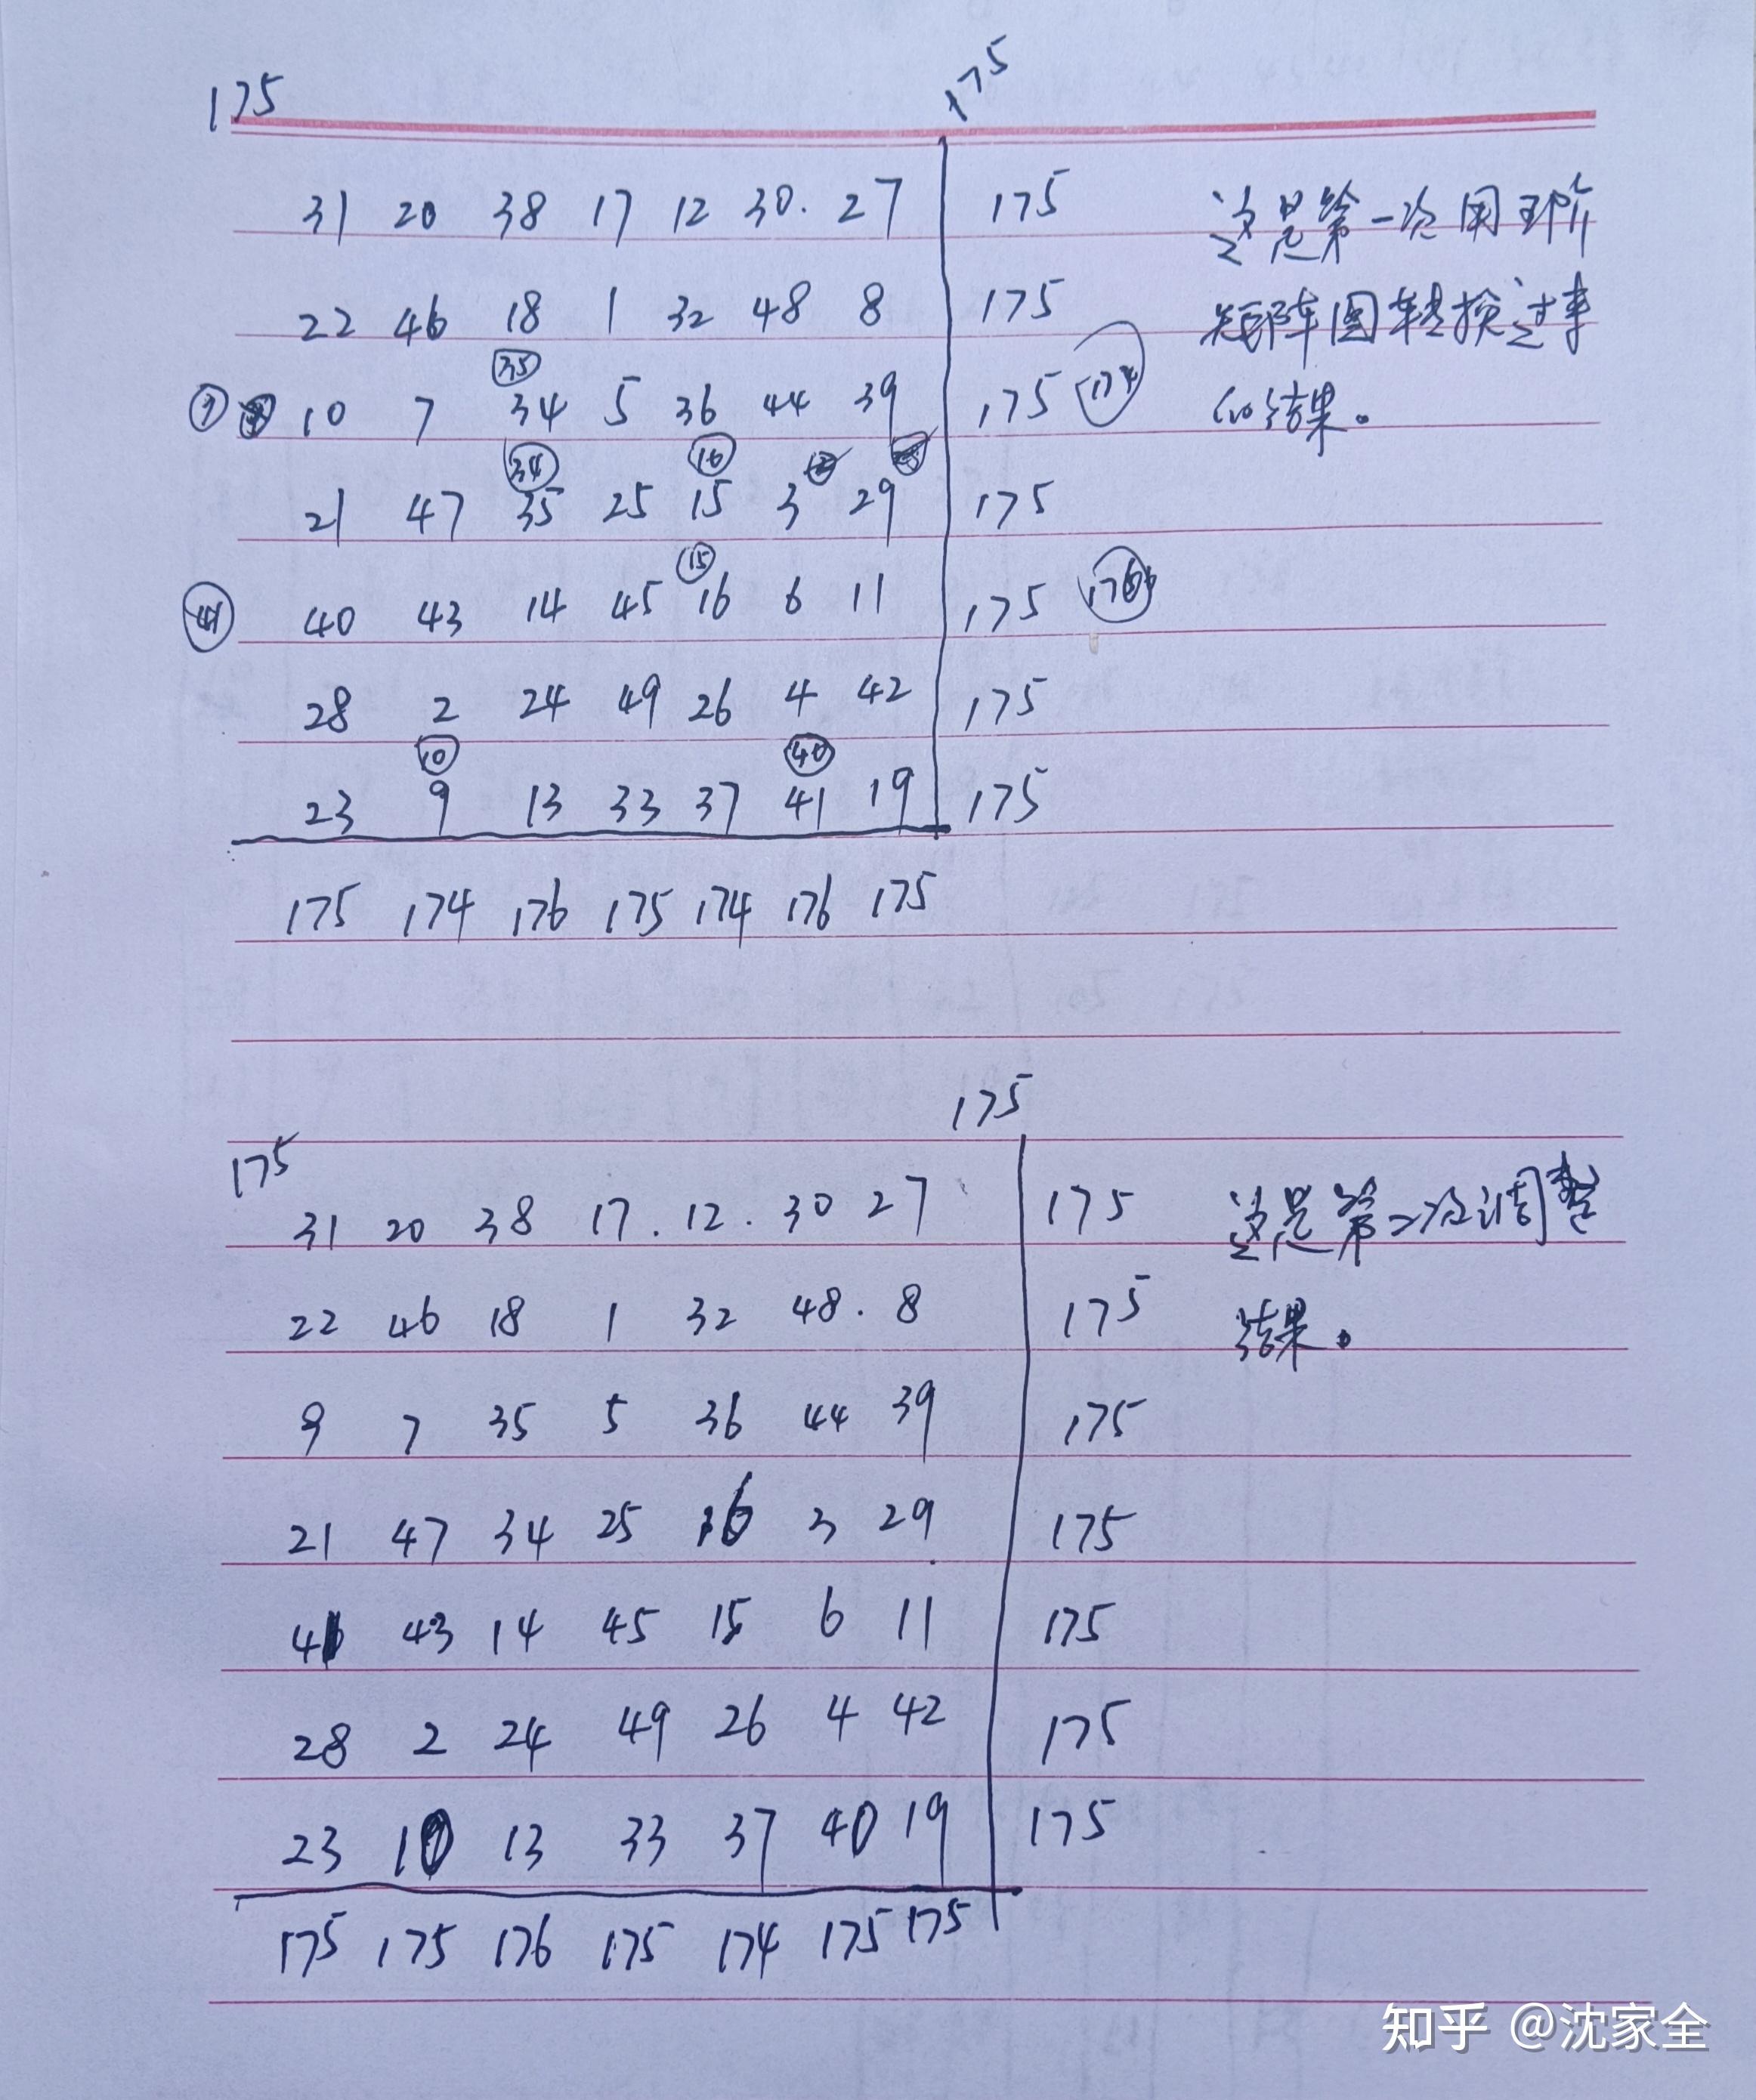 175 175
31 20 38 17 12 30. 27 175 这是第一次用环阶
22 46 18 1 32 48 8 175 矩阵图转换过来
㉟
⑨ 10 7 34 5 36 44 39 175 (174) 的结果。
㉞ ⑯
21 47 35 25 15 3 29 175
⑮
㊶ 40 43 14 45 16 6 11 175 (176)
28 2 24 49 26 4 42 175
⑩ ㊵
23 9 13 33 37 41 19 175
175 174 176 175 174 176 175
175
175
31 20 38 17. 12. 30 27 175 这是第二次调整
22 46 18 1 32 48. 8 175 结果。
9 7 35 5 36 44 39 175
21 47 34 25 16 3 29 175
41 43 14 45 15 6 11 175
28 2 24 49 26 4 42 175
23 10 13 33 37 40 19 175
175 175 176 175 174 175 175
知乎 @沈家全